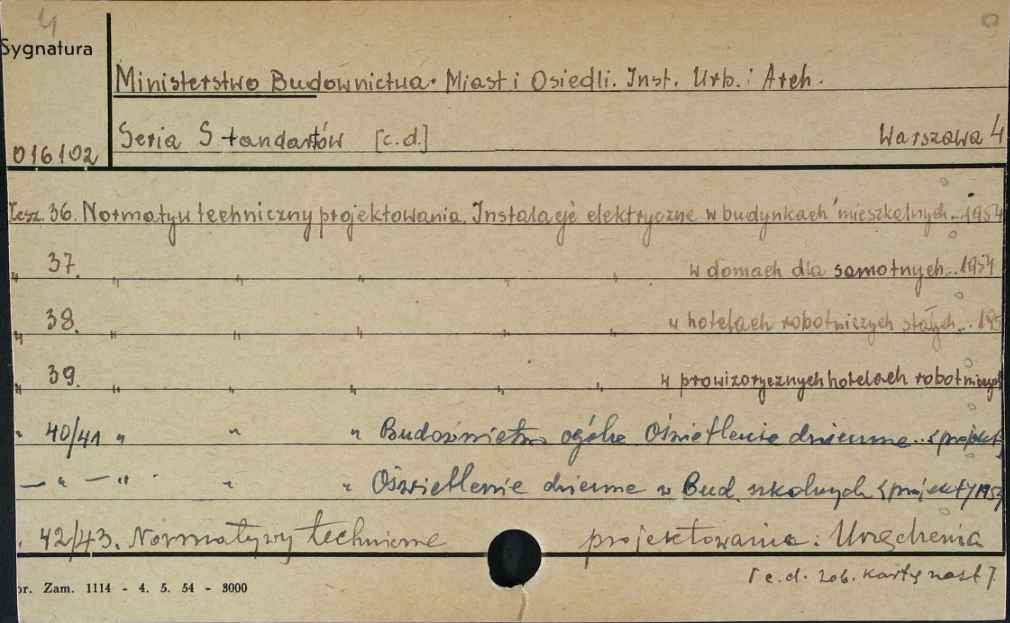 4
Sygnatura
Ministerstwo Budownictwa. Miast i Osiedli. Inst. Urb. i Arch.
Seria Standartów [c.d.] Warszawa 4
016102
Zesz. 36. Normatyw techniczny projektowania. Instalacje elektryczne w budynkach mieszkalnych.. 1954
" 37. " " " " w domach dla samotnych.. 1954
" 38. " " " " " w hotelach robotniczych stałych.. 195
" 39. " " " " " w prowizorycznych hotelach robotniczych
" 40/41 " " " Budownictwo ogólne Oświetlenie dzienne.. (projekt)
— " — " " " Oświetlenie dzienne w Bud. szkolnych (projekt) 195
" 42/43. Normatywy techniczne projektowania: Urządzenia
[c.d. zob. kartę nast]
or. Zam. 1114 - 4. 5. 54 - 3000